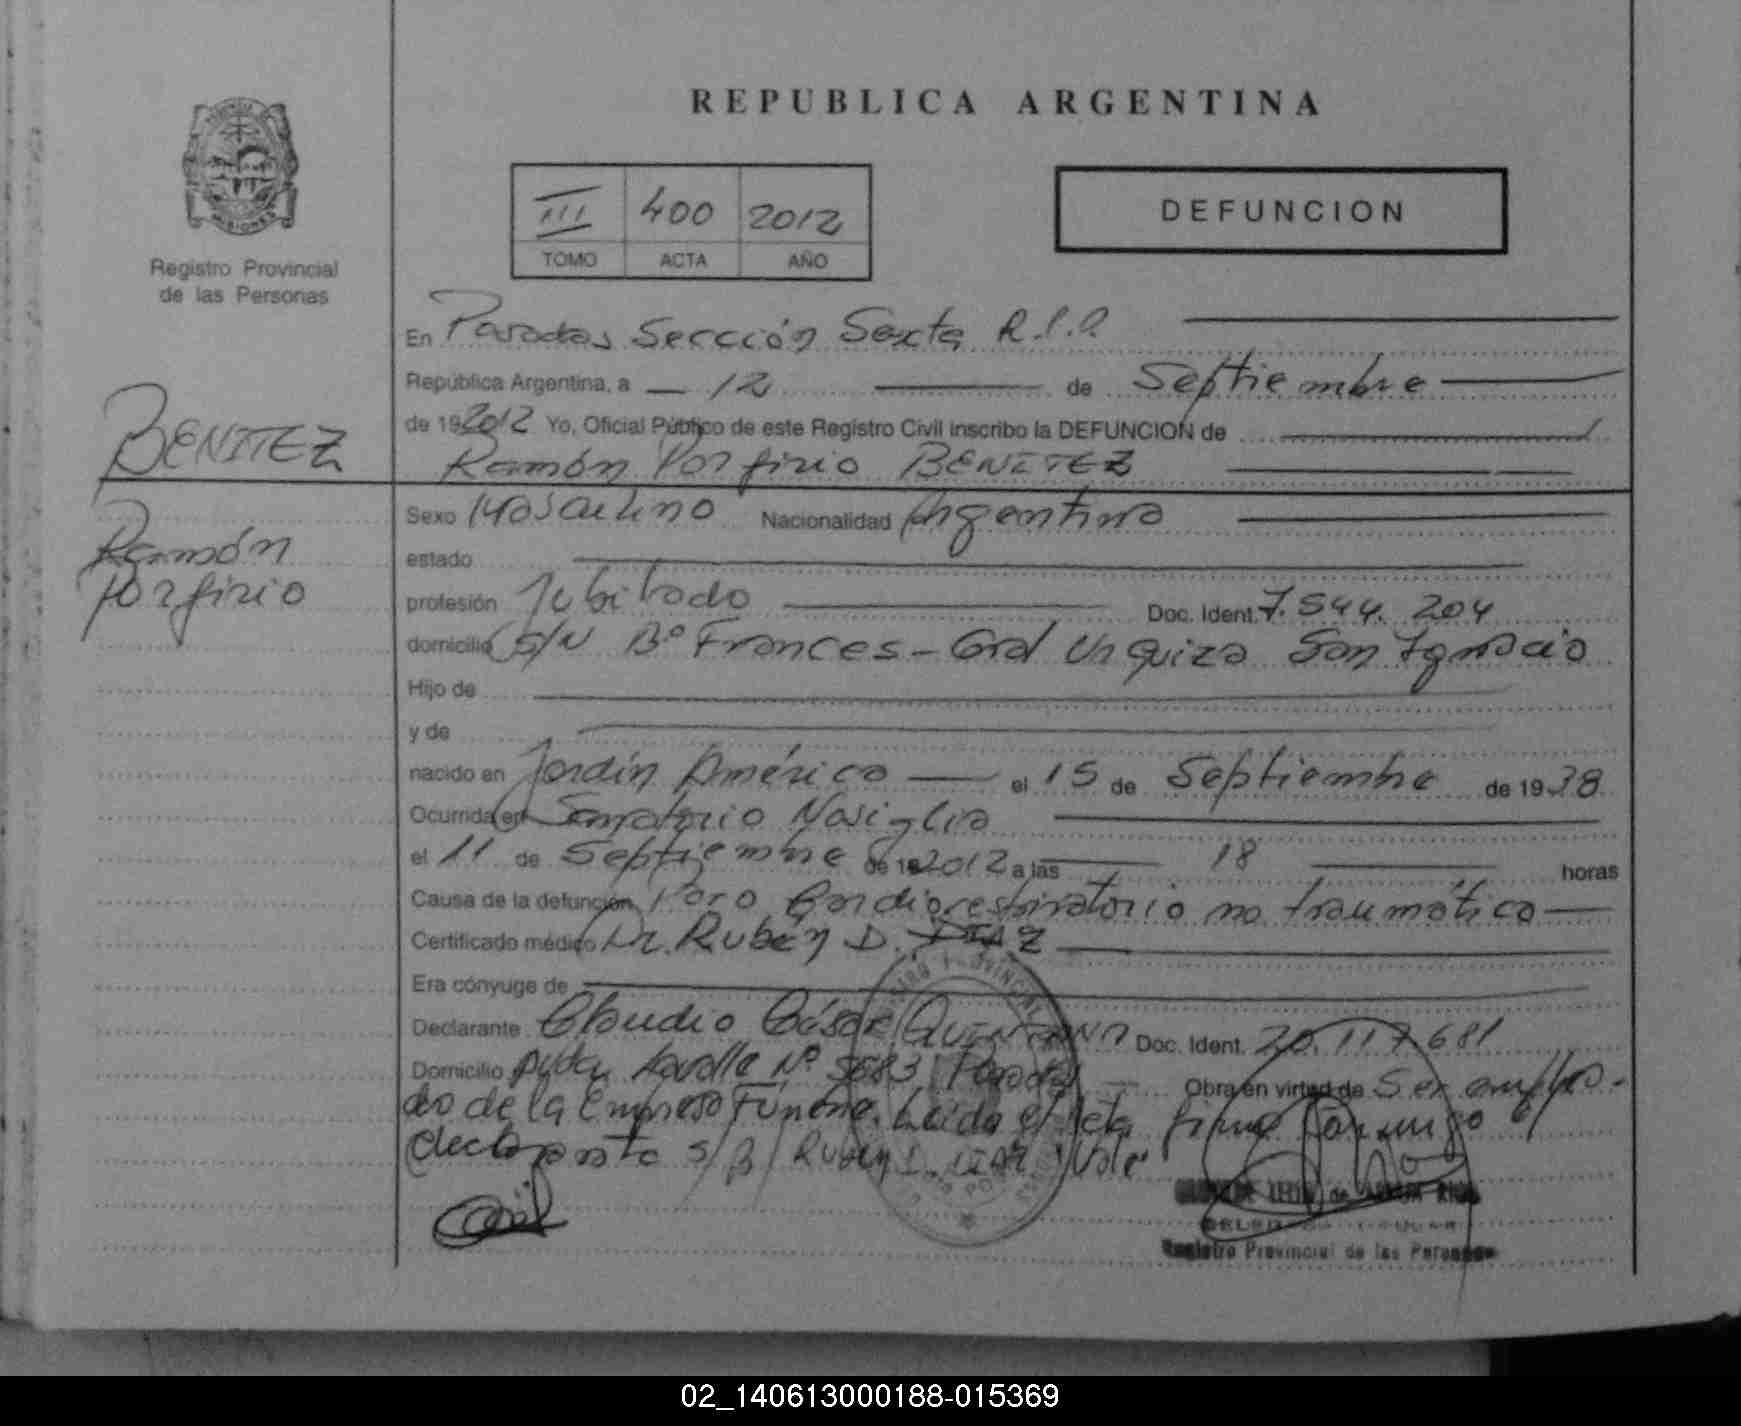 REPUBLICA ARGENTINA
PROVINCIA
MISIONES
Registro Provincial
de las Personas
III 400 2012
TOMO ACTA AÑO
DEFUNCION
En Posadas Sección Sexta R.P.P
República Argentina, a 12 de Septiembre
de 192012 Yo, Oficial Público de este Registro Civil inscribo la DEFUNCION de
BENITEZ
Ramón Porfirio BENITEZ
Ramón
Porfirio
Sexo Masculino Nacionalidad Argentina
estado
profesión Jubilado Doc. Ident. 7.544.204
domicilio S/N Bº Frances - Gral Urquiza San Ignacio
Hijo de
y de
nacido en Jardín América el 15 de Septiembre de 1938
Ocurrida en Sanatorio Nosiglia
el 11 de Septiembre de 192012 a las 18 horas
Causa de la defunción Paro Cardiorespiratorio no traumático
Certificado médico Dr. Rubén D. DIAZ
Era cónyuge de
Declarante Claudio César QUINTANA Doc. Ident. 20.117.681
Domicilio Lavalle Nº 5683 Posadas Obra en virtud de Ser emplea-
do de la Empresa Fúnebre. Leída el Acta firma conmigo el
declarante s/B/ Rubén D. DIAZ Vale
Registro Provincial de las Personas
02_140613000188-015369